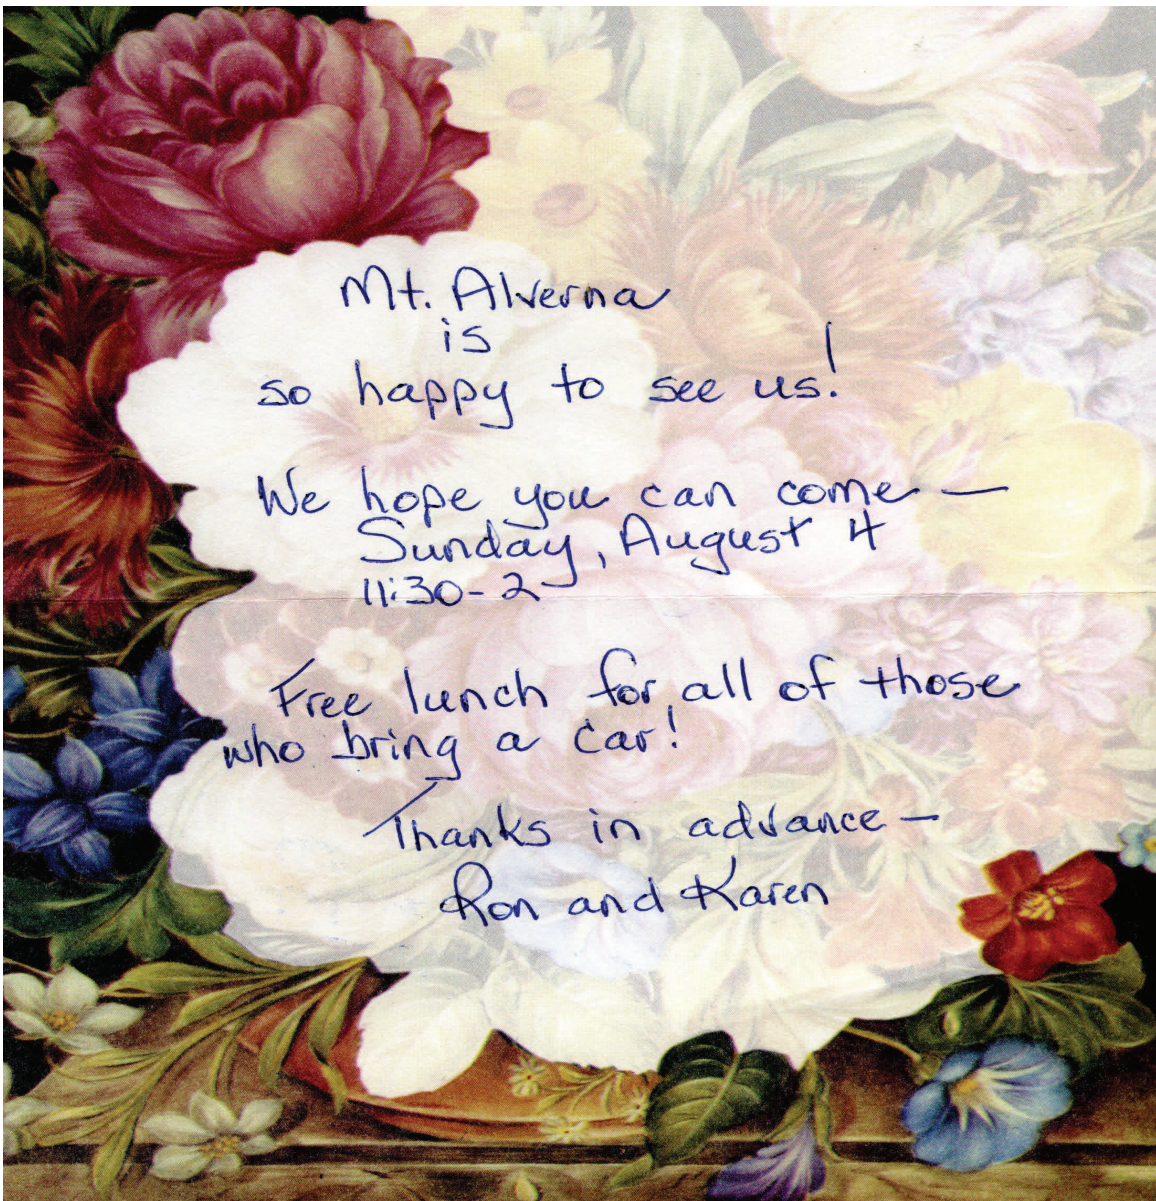 Mt. Alverna
is
so happy to see us!
We hope you can come —
Sunday, August 4
11:30-2
Free lunch for all of those
who bring a car!
Thanks in advance —
Ron and Karen